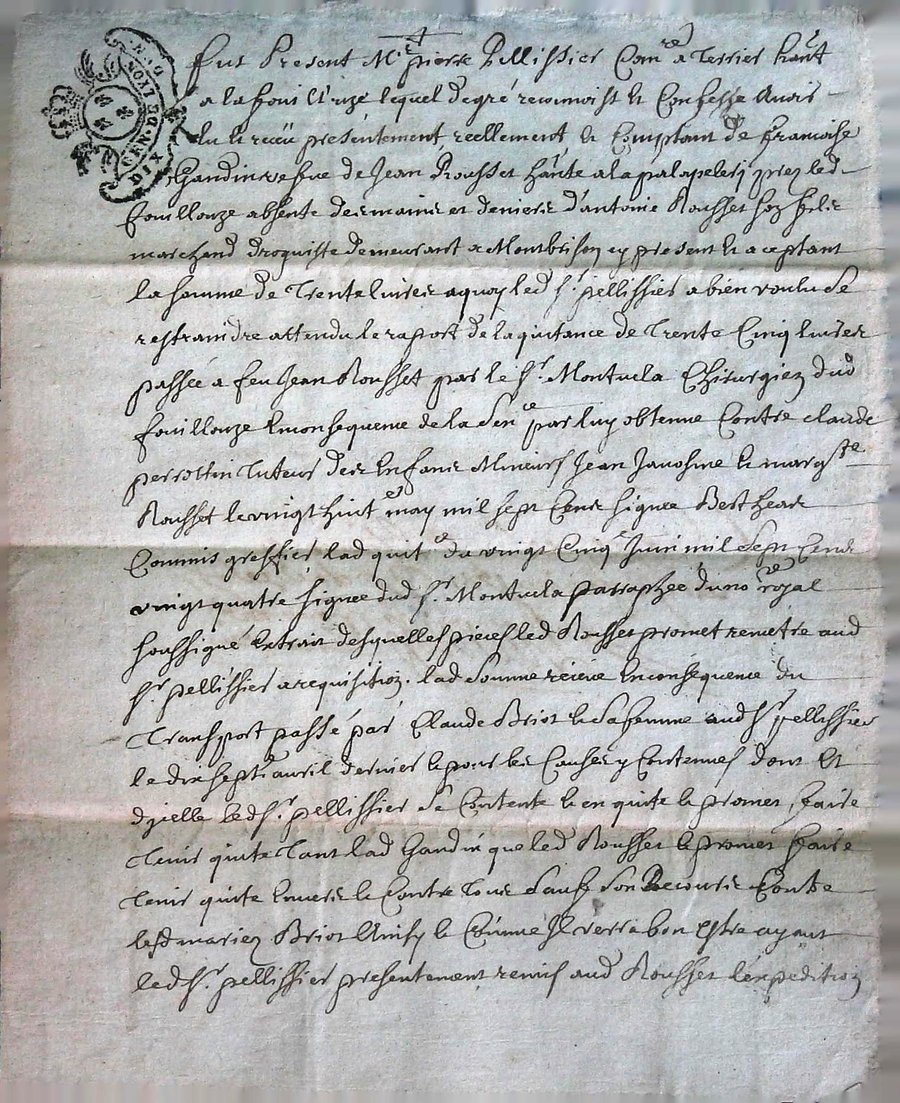 GEN. DE LYON
DIX D
Fut Present Mre pierre Pellissier Comre a Terrier hant
a la foüillouze lequel de gré reconnoist et Confesse Avoir
eu et reçeu présentement, reellement, et Comptant de francoise
Gandin vefve de Jean Rousset hante a la palapelery prez led
foüillouze absente des mains et deniers d'antoine Rousset son fils
marchand droguiste demeurant a Montbrison cy present et aceptant
la somme de Trente livres a quoy led sr. pellissier a bien voulu se
restraindre attendu le raport de la quitance de Trente Cinq livres
passée a feu Jean Rousset par le sr. Montucla Chirurgien dud
foüillouze en consequence de la Sence par luy obtenue Contre claude
perrottin Tuteur des Enfans Mineurs Jean Janosme et margste
Rousset le vingt huit may mil sept Cens signée Berthear
Commis greffier, lad quite du vingt Cinqe Juin mil Sept Cens
vingt quatre signée dud sr. Montucla parraphée du nore royal
soussigné extrait desquelles pieces led Rousset promet remetre aud
sr. pellissier a requisition. lad Somme réçeue En consequence du
Transport passé par Claude Briot et Sa femme aud sr pellissier
le dix sept avril dernier et pour les Causes y Contenues dont Et
d'icelle led sr. pellissier Se Contente et en quite et promet, faire
Tenir quite Tant lad Gandin que led Rousset et promet faire
Tenir quite Envers et Contre Tous Sauf Son Recours Contre
lesd mariez Briot Ainsy et Comme Il verra bon Estre ayant
led sr. pellissier presentement remis aud Rousset l'expedition